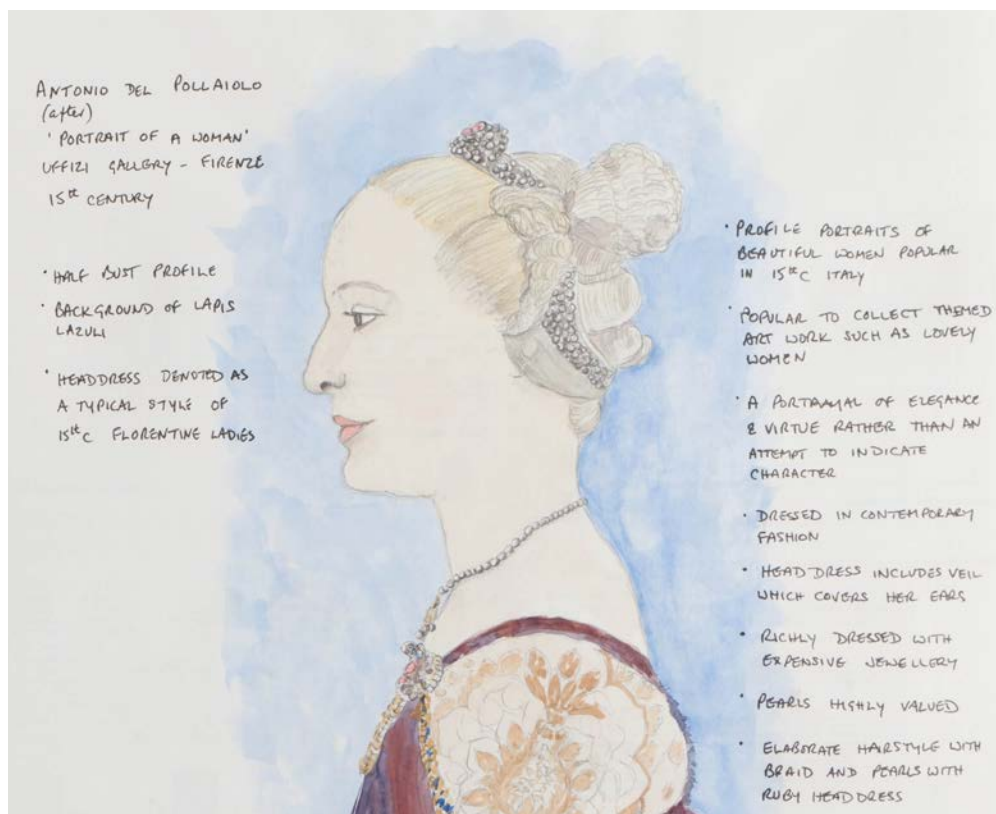 ANTONIO DEL POLLAIOLO
(after)
'PORTRAIT OF A WOMAN'
UFFIZI GALLERY - FIRENZE
15th CENTURY
• HALF BUST PROFILE
• BACKGROUND OF LAPIS
LAZULI
• HEADDRESS DENOTED AS
A TYPICAL STYLE OF
15thC FLORENTINE LADIES
• PROFILE PORTRAITS OF
BEAUTIFUL WOMEN POPULAR
IN 15thC ITALY
• POPULAR TO COLLECT THEMED
ART WORK SUCH AS LOVELY
WOMEN
• A PORTRAYAL OF ELEGANCE
& VIRTUE RATHER THAN AN
ATTEMPT TO INDICATE
CHARACTER
• DRESSED IN CONTEMPORARY
FASHION
• HEADDRESS INCLUDES VEIL
WHICH COVERS HER EARS
• RICHLY DRESSED WITH
EXPENSIVE JEWELLERY
• PEARLS HIGHLY VALUED
• ELABORATE HAIRSTYLE WITH
BRAID AND PEARLS WITH
RUBY HEADDRESS